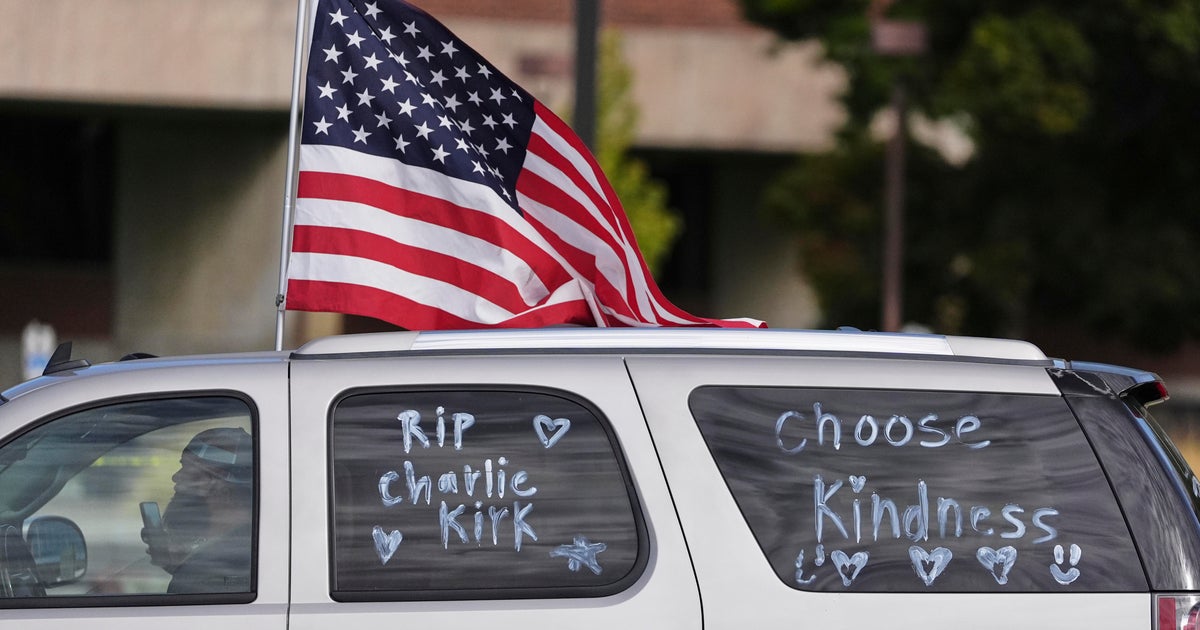 Rip
Charlie
Kirk
Choose
Kindness